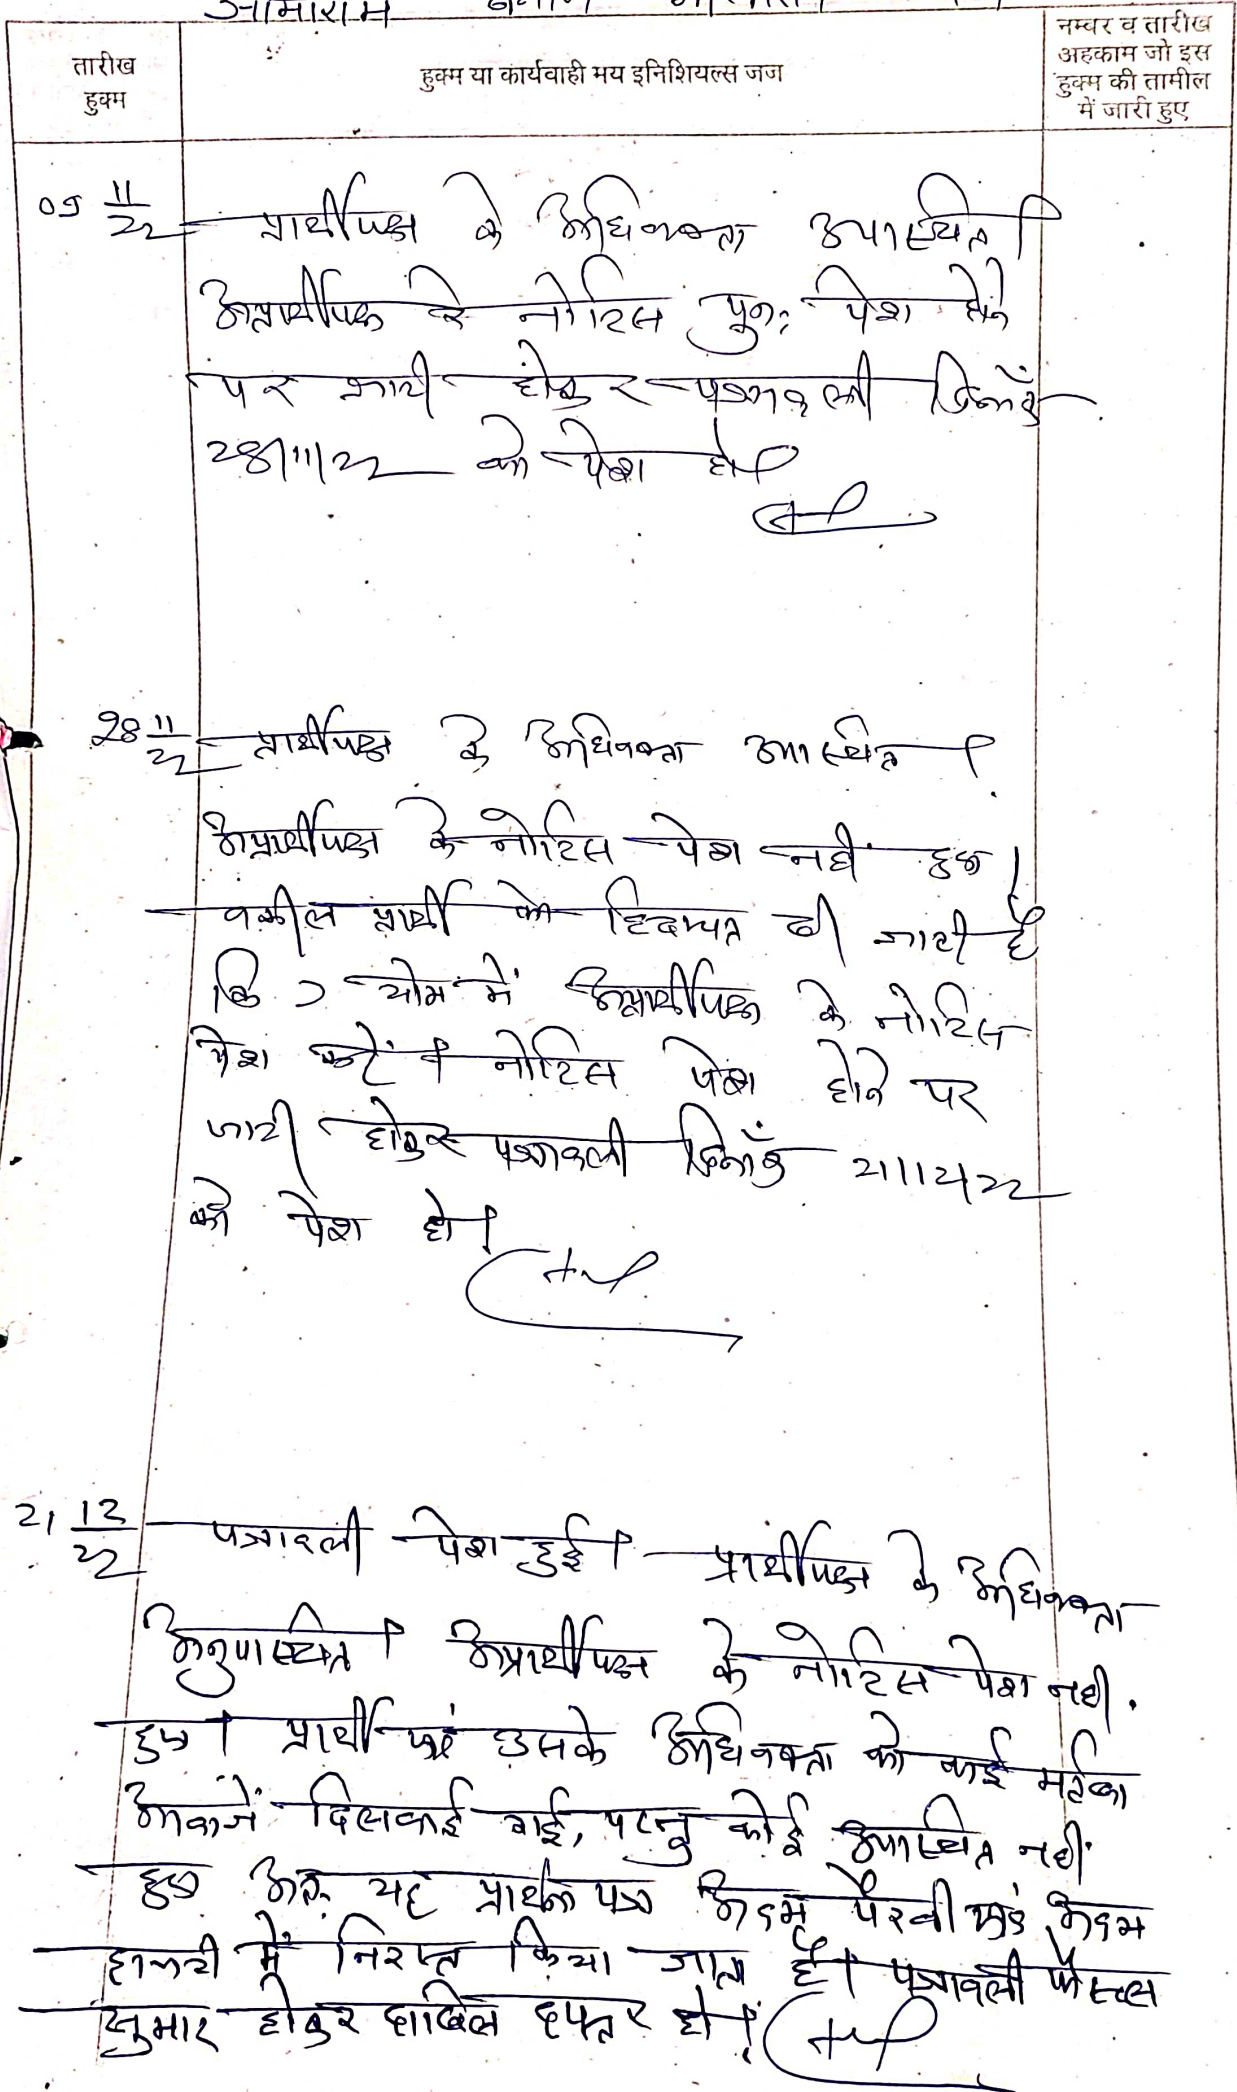 सामाराम बनाम
तारीख
हुक्म
हुक्म या कार्यवाही मय इनिशियल्स जज
नम्बर व तारीख
अहकाम जो इस
हुक्म की तामील
में जारी हुए
09 11/22 प्रार्थीपक्ष के अधिवक्ता उपस्थित।
अप्रार्थीपक्ष के नोटिस पुनः पेश होने
पर जारी होकर पत्रावली दिनाँक
28/11/22 को पेश हो।
28 11/22 प्रार्थीपक्ष के अधिवक्ता उपस्थित।
अप्रार्थीपक्ष के नोटिस पेश नहीं हुए।
वकील प्रार्थी को हिदायत दी जाती है
कि 7 योम में अप्रार्थीपक्ष के नोटिस
पेश करें व नोटिस पेश होने पर
जारी होकर पत्रावली दिनाँक 21/12/22
को पेश हो।
21 12/22 पत्रावली पेश हुई। प्रार्थीपक्ष के अधिवक्ता
अनुपस्थित। अप्रार्थीपक्ष के नोटिस पेश नहीं
हुए। प्रार्थी एवं उसके अधिवक्ता को कई मर्तबा
आवाजें दिलवाई गई, परन्तु कोई उपस्थित नहीं
हुआ अतः यह प्रार्थना पत्र अदम पैरवी एवं अदम
हाजरी में निरस्त किया जाता है। पत्रावली फैसल
सुमार होकर दाखिल दफ्तर हो।